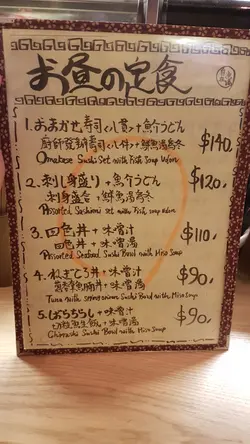 お昼の定食
1. おまかせ寿司<八貫>+魚介うどん $140.
廚師發辦壽司<八件>+鮮魚湯烏冬
Omakase Sushi Set with Fish Soup Udon
2. 刺し身盛り+魚介うどん $120.
刺身盛合+鮮魚湯烏冬
Assorted Sashimi Set with Fish Soup Udon
3. 四色丼+味噌汁 $110.
四色丼+味噌湯
Assorted Seafood Sushi Bowl with Miso Soup
4. ねぎとろ丼+味噌汁 $90.
+味噌湯
Tuna with spring onion Sushi Bowl with Miso Soup
5. ばらちらし+味噌汁 $90.
魚生飯+味噌湯
Chirashi Sushi Bowl with Miso Soup